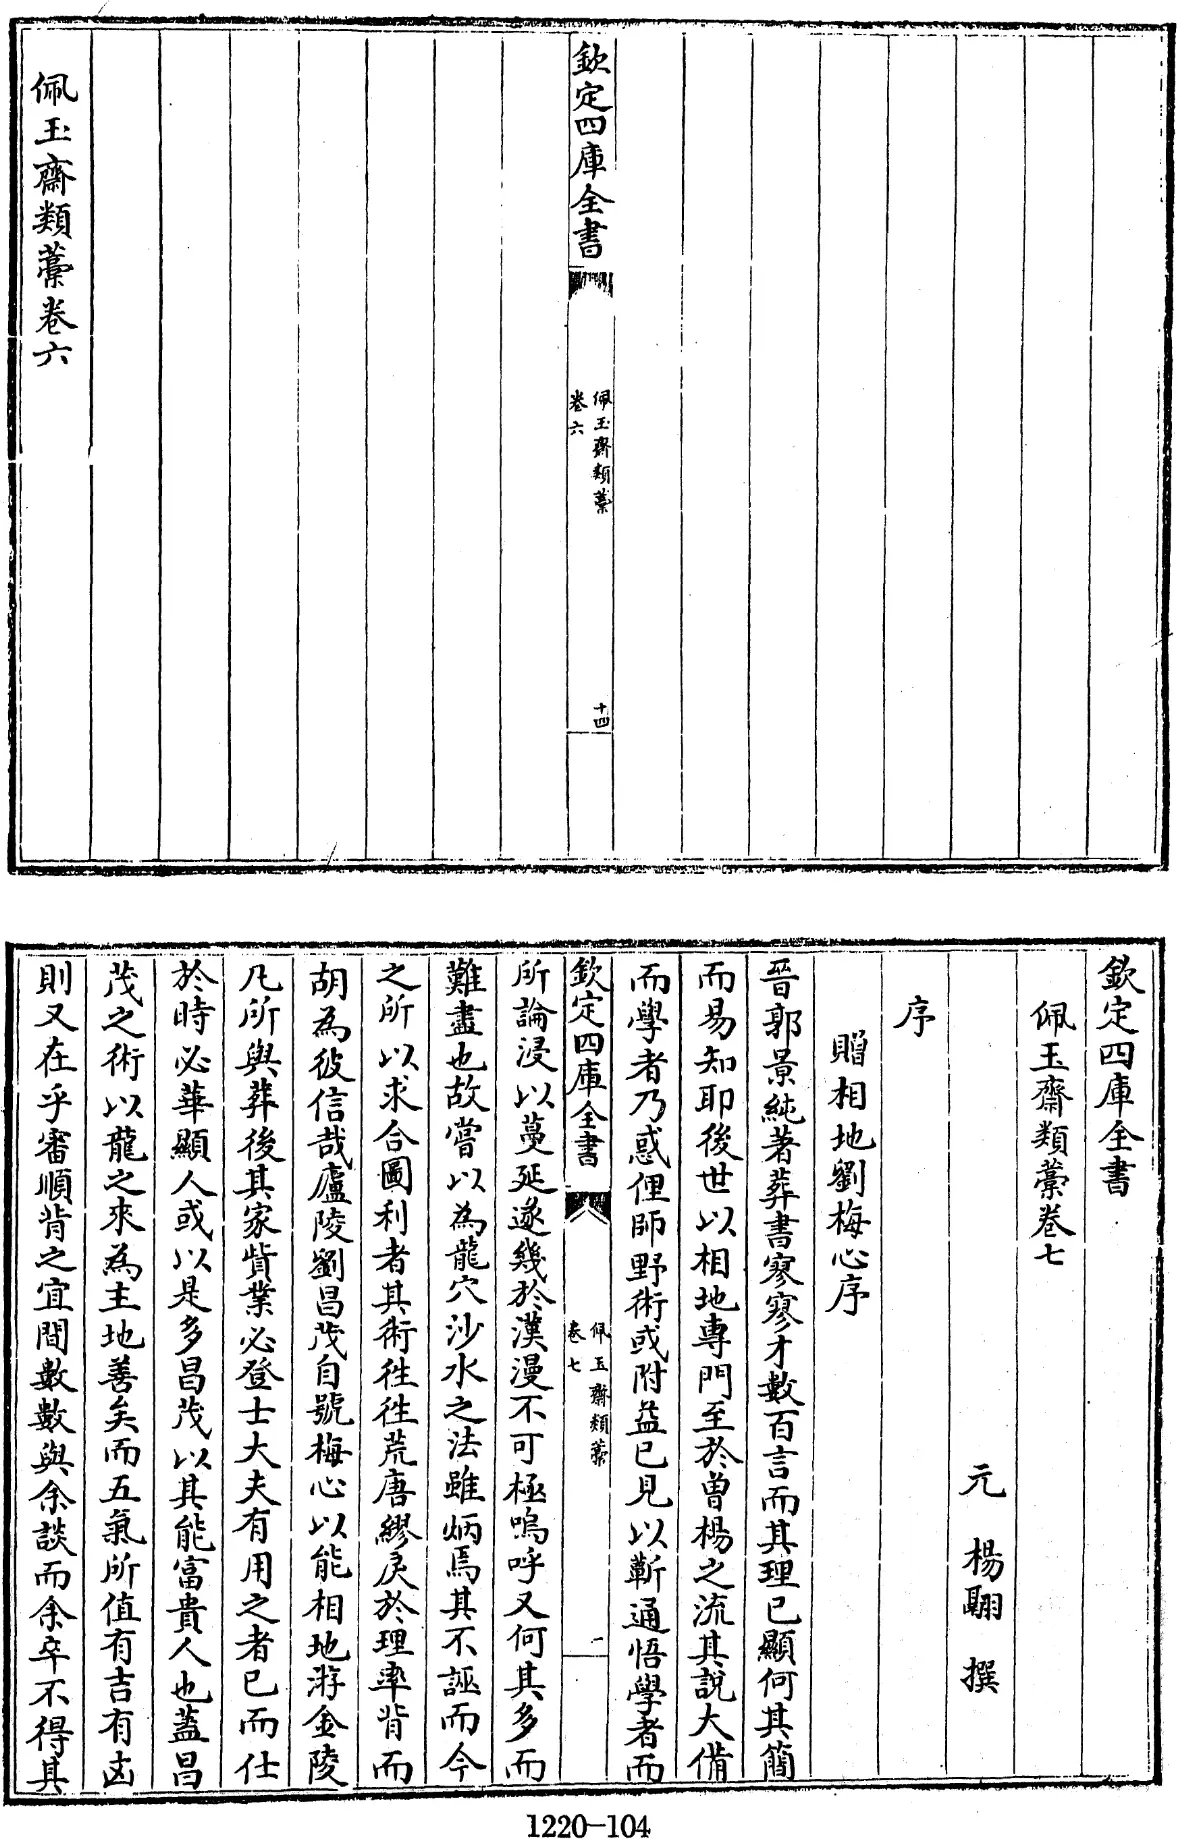 欽定四庫全書
佩玉齋類藳
卷六
十四
佩玉齋類藳卷六
欽定四庫全書
佩玉齋類藳卷七
元 楊翮 撰
序
贈相地劉梅心序
晉郭景純著葬書寥寥才數百言而其理已顯何其簡
而易知耶後世以相地專門至於曽楊之流其説大備
而學者乃惑俚師野術或附益已見以蘄通悟學者而
欽定四庫全書
佩玉齋類藳
卷七
一
所論浸以蔓延遂幾於漢漫不可極嗚呼又何其多而
難盡也故嘗以為龍穴沙水之法雖炳焉其不誣而今
之所以求合圖利者其術徃徃荒唐繆戾於理率背而
胡為彼信哉廬陵劉昌茂自號梅心以能相地游金陵
凡所與葬後其家貲業必登士大夫有用之者已而仕
於時必華顯人或以是多昌茂以其能富貴人也蓋昌
茂之術以龍之來為主地善矣而五氣所值有吉有凶
則又在乎審順背之宜間數數與余談而余卒不得其
1220-104